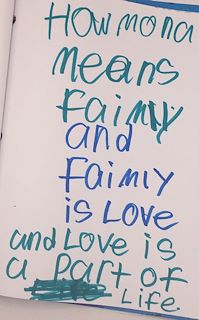 HOW MONA
means
Faimly
and
Faimly
is LOVE
and LOVE is
a Part OF
LIFE.